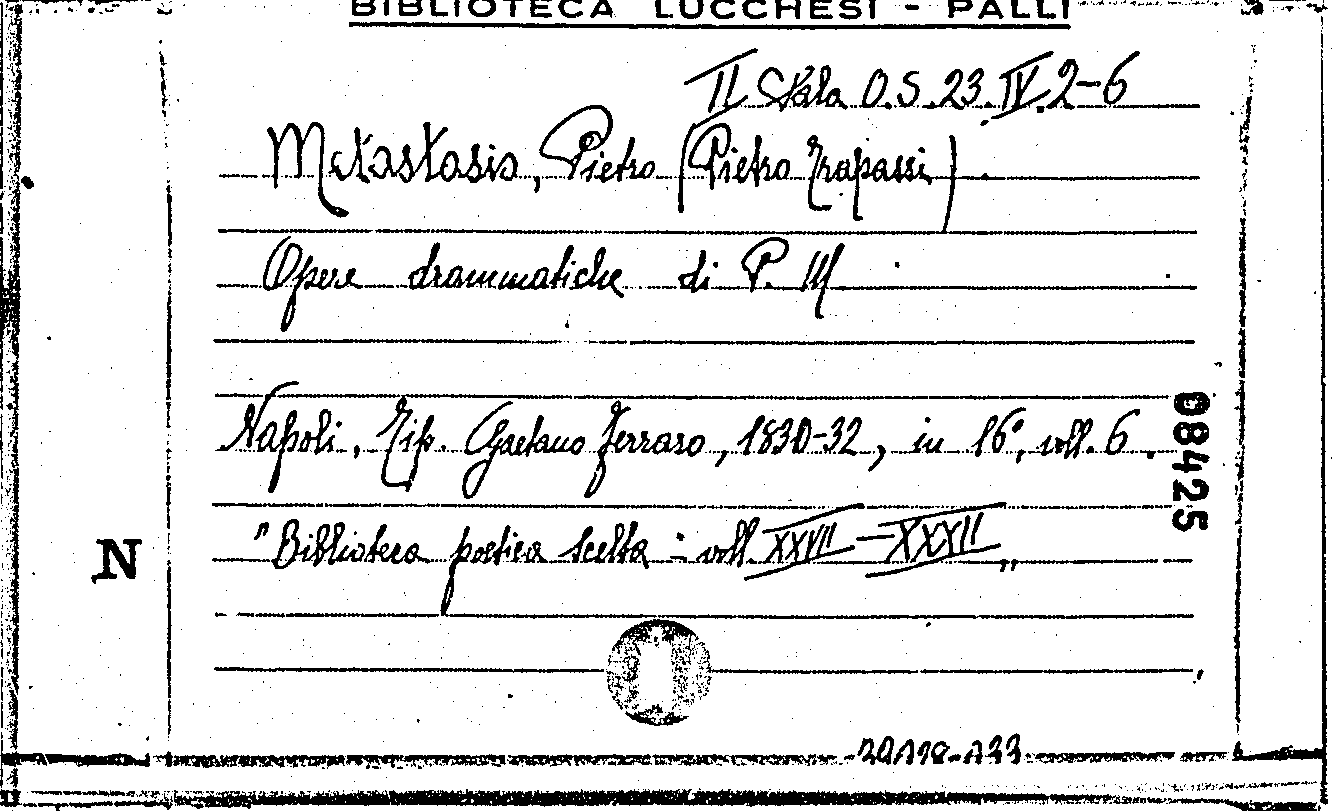 BIBLIOTECA LUCCHESI - PALLI
II Sala O.S.23.IV.2-6
Metastasio, Pietro (Pietro Trapassi).
Opere drammatiche di P. M.
Napoli, Tip. Gaetano Ferraro, 1830-32, in 16°, voll. 6.
"Biblioteca poetica scelta - voll. XXVII-XXXII"
08425
N